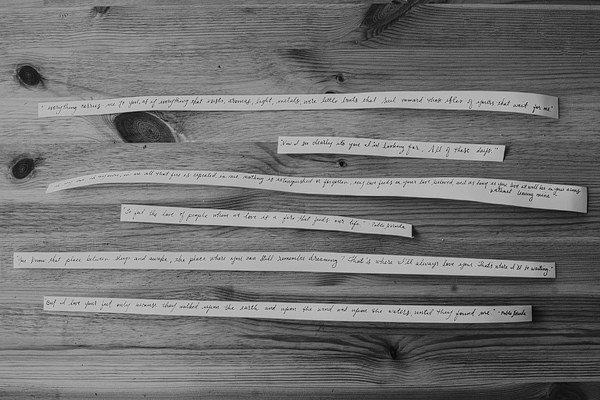 "everything carries me to you, as if everything that exists, aromas, light, metals, were little boats that sail toward those isles of yours that wait for me."
"Now I see clearly it's you I'm looking for. All of these days."
in me all that fire is repeated in me nothing is extinguished or forgotten, my love feeds on your love, beloved, and as long as you live it will be in your arms
without leaving mine."
"To feel the love of people whom we love is a fire that feeds our life." - Pablo Neruda
"You know that place between sleep and awake, the place where you can still remember dreaming? That's where I'll always love you. That's where I'll be waiting."
"But I love your feet only because they walked upon the earth and upon the wind and upon the waters, until they found me." - Pablo Neruda